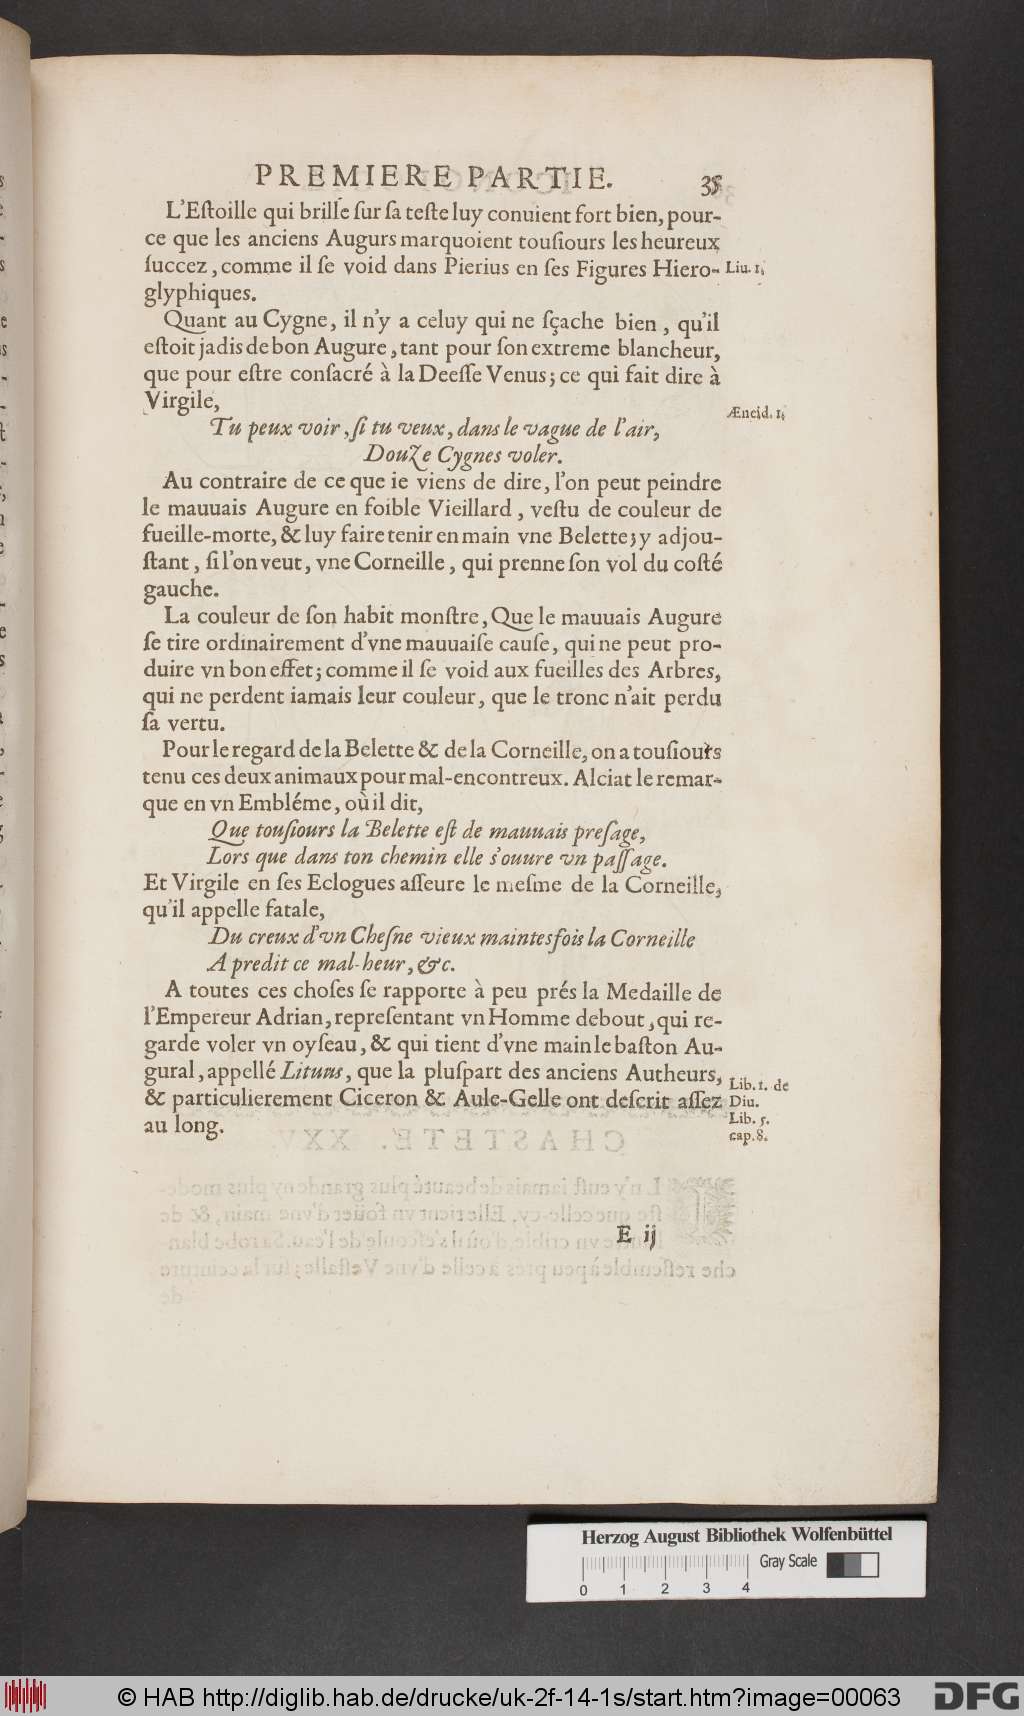 PREMIERE PARTIE. 35
L'Eſtoille qui brille ſur ſa teſte luy conuient fort bien, pour-
ce que les anciens Augurs marquoient touſiours les heureux
ſuccez, comme il ſe void dans Pierius en ſes Figures Hiero- Liu. 1.
glyphiques.
Quant au Cygne, il n'y a celuy qui ne ſçache bien, qu'il
eſtoit jadis de bon Augure, tant pour ſon extreme blancheur,
que pour eſtre conſacré à la Deeſſe Venus; ce qui fait dire à
Virgile,
Æneid. 1.
Tu peux voir, ſi tu veux, dans le vague de l'air,
Douze Cygnes voler.
Au contraire de ce que ie viens de dire, l'on peut peindre
le mauuais Augure en foible Vieillard, veſtu de couleur de
fueille-morte, & luy faire tenir en main vne Belette; y adjou-
ſtant, ſi l'on veut, vne Corneille, qui prenne ſon vol du coſté
gauche.
La couleur de ſon habit monſtre, Que le mauuais Augure
ſe tire ordinairement d'vne mauuaiſe cauſe, qui ne peut pro-
duire vn bon effet; comme il ſe void aux fueilles des Arbres,
qui ne perdent iamais leur couleur, que le tronc n'ait perdu
ſa vertu.
Pour le regard de la Belette & de la Corneille, on a touſiours
tenu ces deux animaux pour mal-encontreux. Alciat le remar-
que en vn Embléme, où il dit,
Que touſiours la Belette eſt de mauuais preſage,
Lors que dans ton chemin elle s'ouure vn paſſage.
Et Virgile en ſes Eclogues aſſeure le meſme de la Corneille,
qu'il appelle fatale,
Du creux d'vn Cheſne vieux maintesfois la Corneille
A predit ce mal-heur, &c.
A toutes ces choſes ſe rapporte à peu prés la Medaille de
l'Empereur Adrian, repreſentant vn Homme debout, qui re-
garde voler vn oyſeau, & qui tient d'vne main le baſton Au-
gural, appellé Lituus, que la pluſpart des anciens Autheurs,
& particulierement Ciceron & Aule-Gelle ont deſcrit aſſez
au long.
Lib. 1. de
Diu.
Lib. 5.
cap. 8.
E ij
Herzog August Bibliothek Wolfenbüttel
Gray Scale
0 1 2 3 4
© HAB http://diglib.hab.de/drucke/uk-2f-14-1s/start.htm?image=00063
DFG